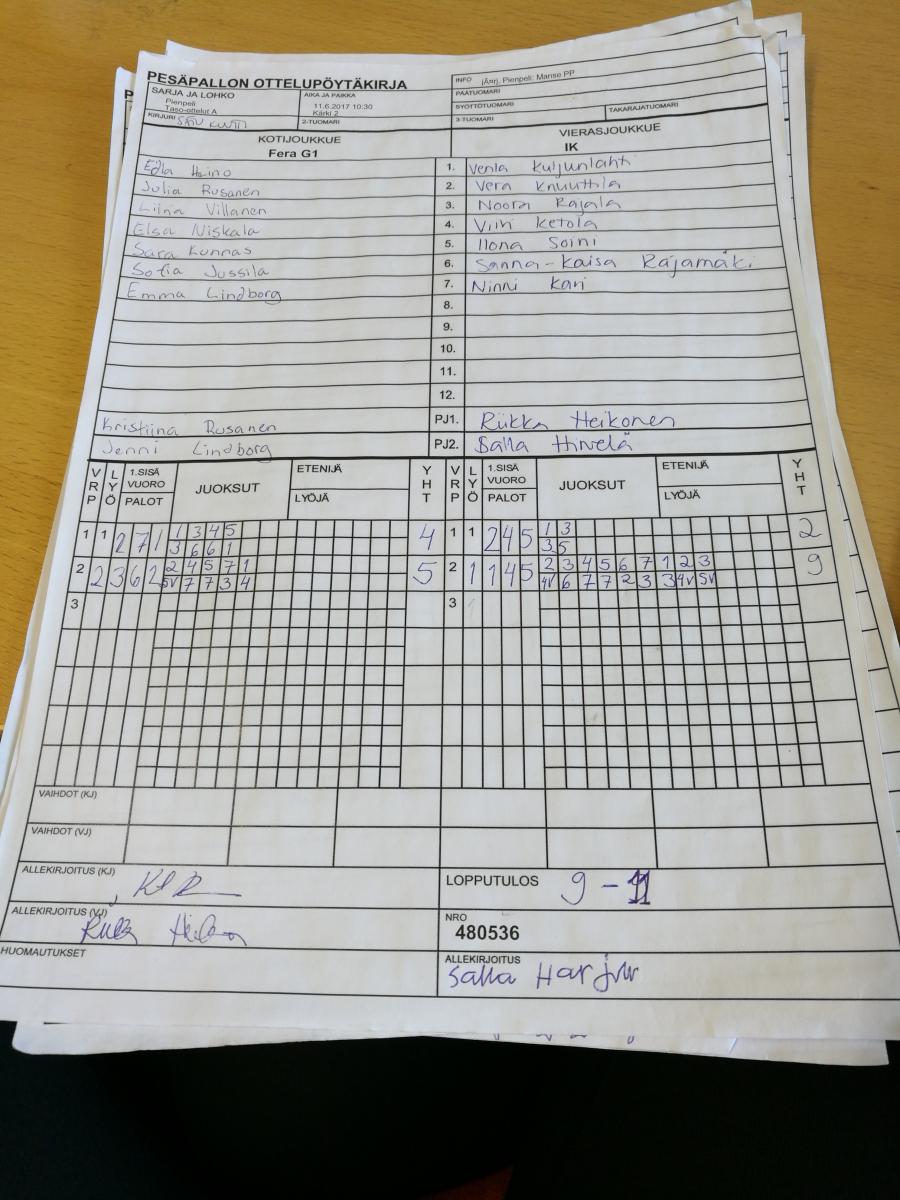 PESÄPALLON OTTELUPÖYTÄKIRJA
SARJA JA LOHKO
Pienpeli
Taso-ottelut A
AIKA JA PAIKKA
11.6.2017 10:30
Kärki 2
INFO (Järj. Pienpeli: Manse PP
PÄÄTUOMARI
SYÖTTÖTUOMARI
TAKARAJATUOMARI
KIRJURI
2-TUOMARI
3-TUOMARI
KOTIJOUKKUE
Fera G1
VIERASJOUKKUE
IK
Edla Heino 1. Venla Kuljunlahti
Julia Rusanen 2. Vera Knuuttila
Liina Villanen 3. Noora Rajala
Elsa Niskala 4. Viivi Ketola
Sara Kunnas 5. Ilona Soini
Sofia Jussila 6. Sanna-Kaisa Rajamäki
Emma Lindborg 7. Ninni Kari
8.
9.
10.
11.
12.
Kristiina Rusanen PJ1. Riikka Heikonen
Jenni Lindborg PJ2. Salla Hirvelä
VRP LYÖ 1.SISÄ VUORO PALOT JUOKSUT ETENIJÄ LYÖJÄ YHT VRP LYÖ 1.SISÄ VUORO PALOT JUOKSUT ETENIJÄ LYÖJÄ YHT
1 1 2 7 1 1 3 4 5 4 1 1 2 4 5 1 3 2
3 6 6 1 3 5
2 2 3 6 2 2 4 5 7 1 5 2 1 1 4 5 2 3 4 5 6 7 1 2 3 9
5V 7 7 3 4 4V 6 7 7 2 3 3 4V 5V
3 3
VAIHDOT (KJ)
VAIHDOT (VJ)
ALLEKIRJOITUS (KJ)
LOPPUTULOS 9 - 11
ALLEKIRJOITUS (VJ)
NRO
480536
HUOMAUTUKSET
ALLEKIRJOITUS
Salla Harju